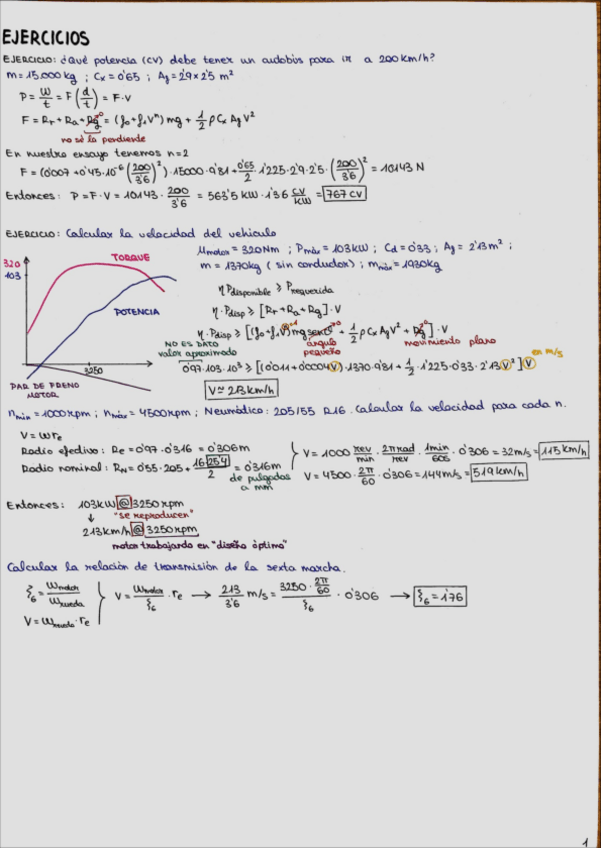 EJERCICIOS
EJERCICIO: ¿Qué potencia (CV) debe tener un autobús para ir a 200 km/h?
m = 15.000 kg ; Cx = 0'65 ; Af = 2'9 x 2'5 m²
P = W/t = F (d/t) = F·V
F = Rr + Ra + Rg→0 = (f0 + f1 Vⁿ) mg + 1/2 ρ Cx Af V²
no sé la pendiente
En nuestro ensayo tenemos n=2
F = (0'007 + 0'45·10⁻⁶ (200/3'6)²)·15000·9'81 + 0'65/2 · 1'225·2'9·2'5·(200/3'6)² = 10143 N
Entonces: P = F·V = 10143 · 200/3'6 = 563'5 kW · 1'36 CV/kW = 767 CV
EJERCICIO: Calcular la velocidad del vehículo
320
103
TORQUE
POTENCIA
3250
PAR DE FRENO MOTOR
Mmotor = 320 Nm ; Pmáx = 103 kW ; Cd = 0'33 ; Af = 2'13 m² ;
m = 1370 kg (sin conductor) ; mmáx = 1930 kg
η Pdisponible ≥ Prequerida
η·Pdisp ≥ [Rr + Ra + Rg]·V
η·Pdisp ≥ [(f0 + f1 V) mg cosθ + 1/2 ρ Cx Af V² + Rg→0]·V
NO ES DATO
valor aproximado
ángulo pequeño
movimiento plano
0'97·103·10³ ≥ [(0'011 + 0'0004 V)·1370·9'81 + 1/2·1'225·0'33·2'13 V²] V
en m/s
V ≃ 213 km/h
nmín = 1000 rpm ; nmáx = 4500 rpm ; Neumático: 205/55 R16. Calcular la velocidad para cada n.
V = ω re
Radio efectivo: Re = 0'97·0'316 = 0'306 m
Radio nominal: RN = 0'55·205 + 16·25'4/2 = 0'316 m
de pulgadas a mm
V = 1000 rev/min · 2π rad/rev · 1min/60s · 0'306 = 32 m/s = 115 km/h
V = 4500 · 2π/60 · 0'306 = 144 m/s = 519 km/h
Entonces: 103 kW @ 3250 rpm
↓ "se reproducen"
213 km/h @ 3250 rpm
motor trabajando en "diseño óptimo"
Calcular la relación de transmisión de la sexta marcha.
ξ6 = ωmotor/ωrueda
V = ωrueda · re
V = ωmotor/ξ6 · re → 213/3'6 m/s = 3250·2π/60 / ξ6 · 0'306 → ξ6 = 1'76
1